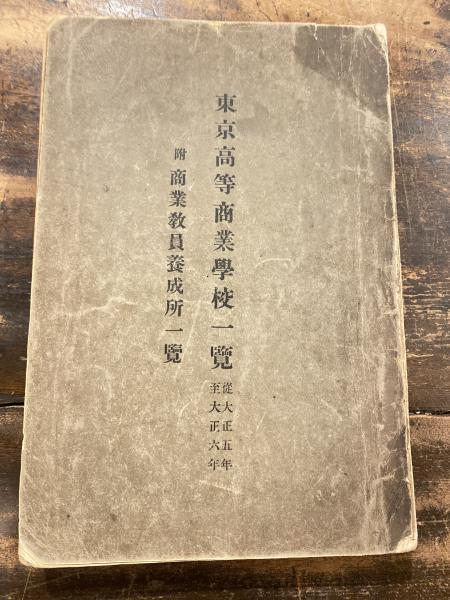 東京高等商業學校一覽
從大正五年
至大正六年
附 商業敎員養成所一覽